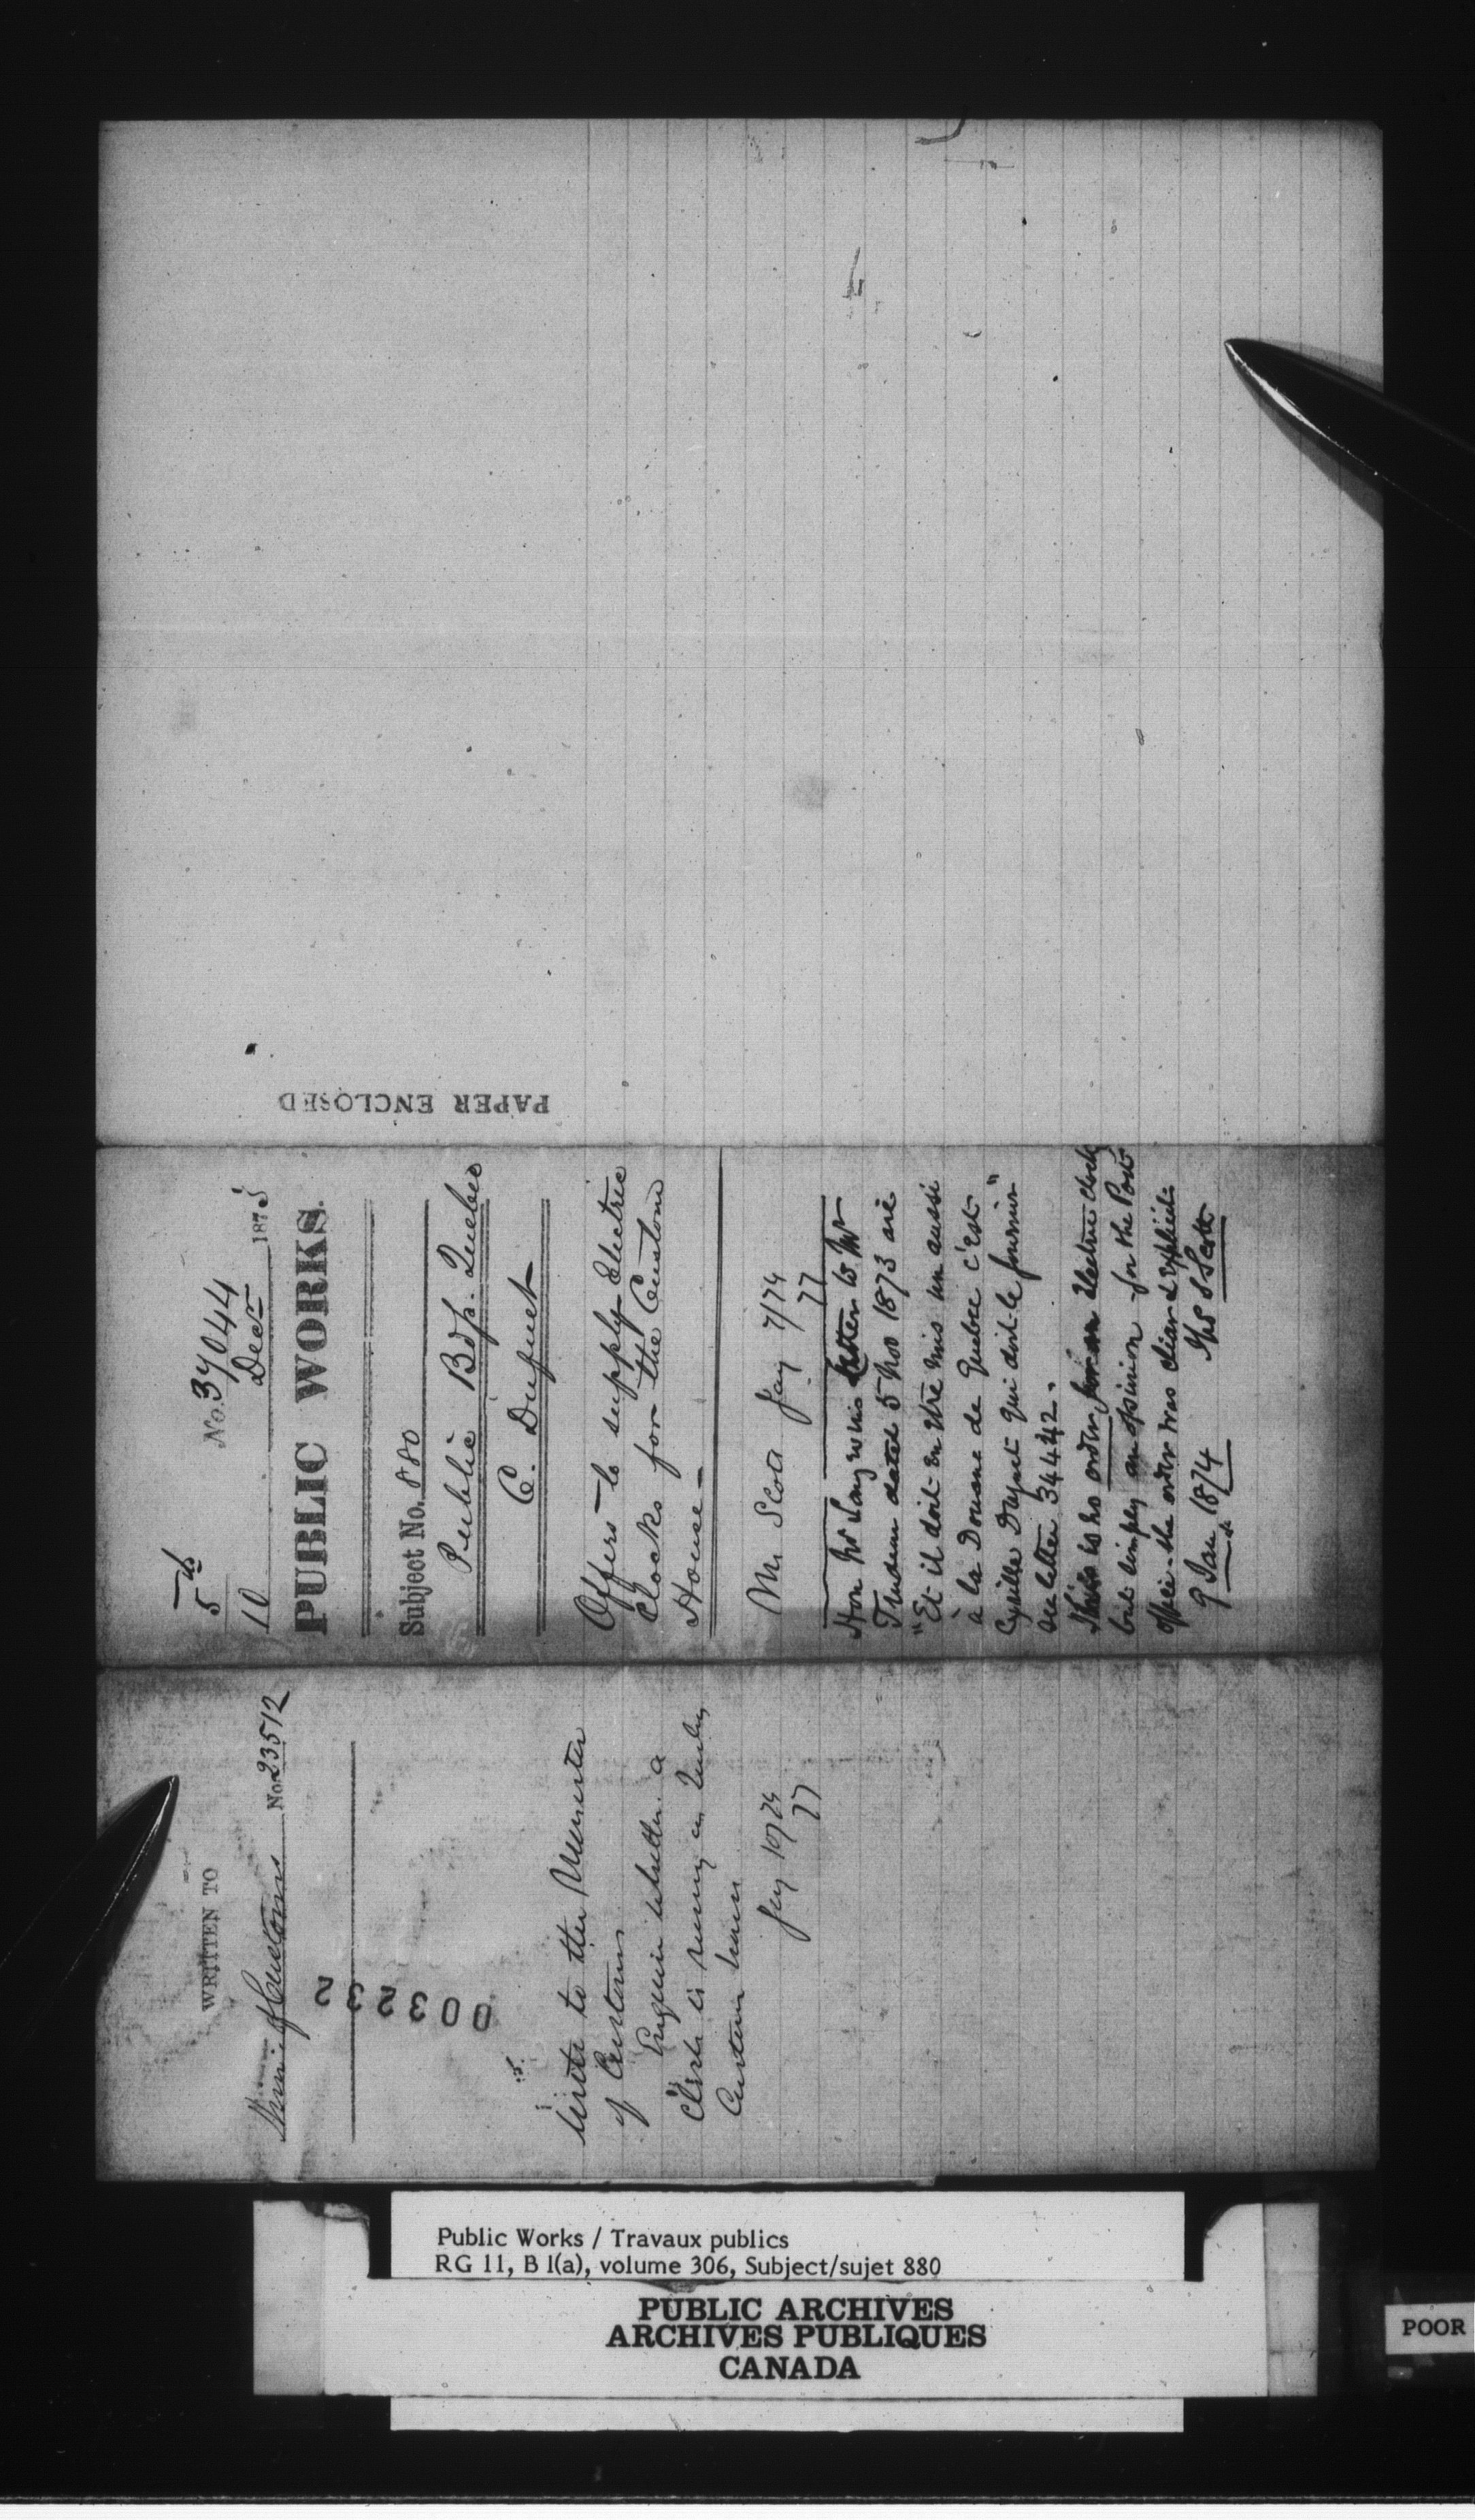 WRITTEN TO
of Customs No. 23512
003232
Write to the Minister
of Customs
Enquire whether a
Clock is necessary in Quebec
Custom house
Jany 10/74
5th No. 37044
10 Decr 1873
PUBLIC WORKS.
Subject No. 880
Public Bdgs. Quebec
C. Duquet
Offers to supply Electric
Clocks for the Custom
House —
Mr Scott Jany 7/74
Hon Mr Langevins letter to Mr
Trudeau dated 5 Nov 1873 are
"Et il doit en être mis un aussi
à la Douane de Quebec c'est
Cyrille Duquet qui doit le fournir"
see letter 34442.
This is no order for an Electric clock
but simply an opinion – for the Post
office – the order was clear & explicit.
9 Jan 1874 Thos S Scott
PAPER ENCLOSED
Public Works / Travaux publics
RG 11, B 1(a), volume 306, Subject/sujet 880
PUBLIC ARCHIVES
ARCHIVES PUBLIQUES
CANADA
POOR